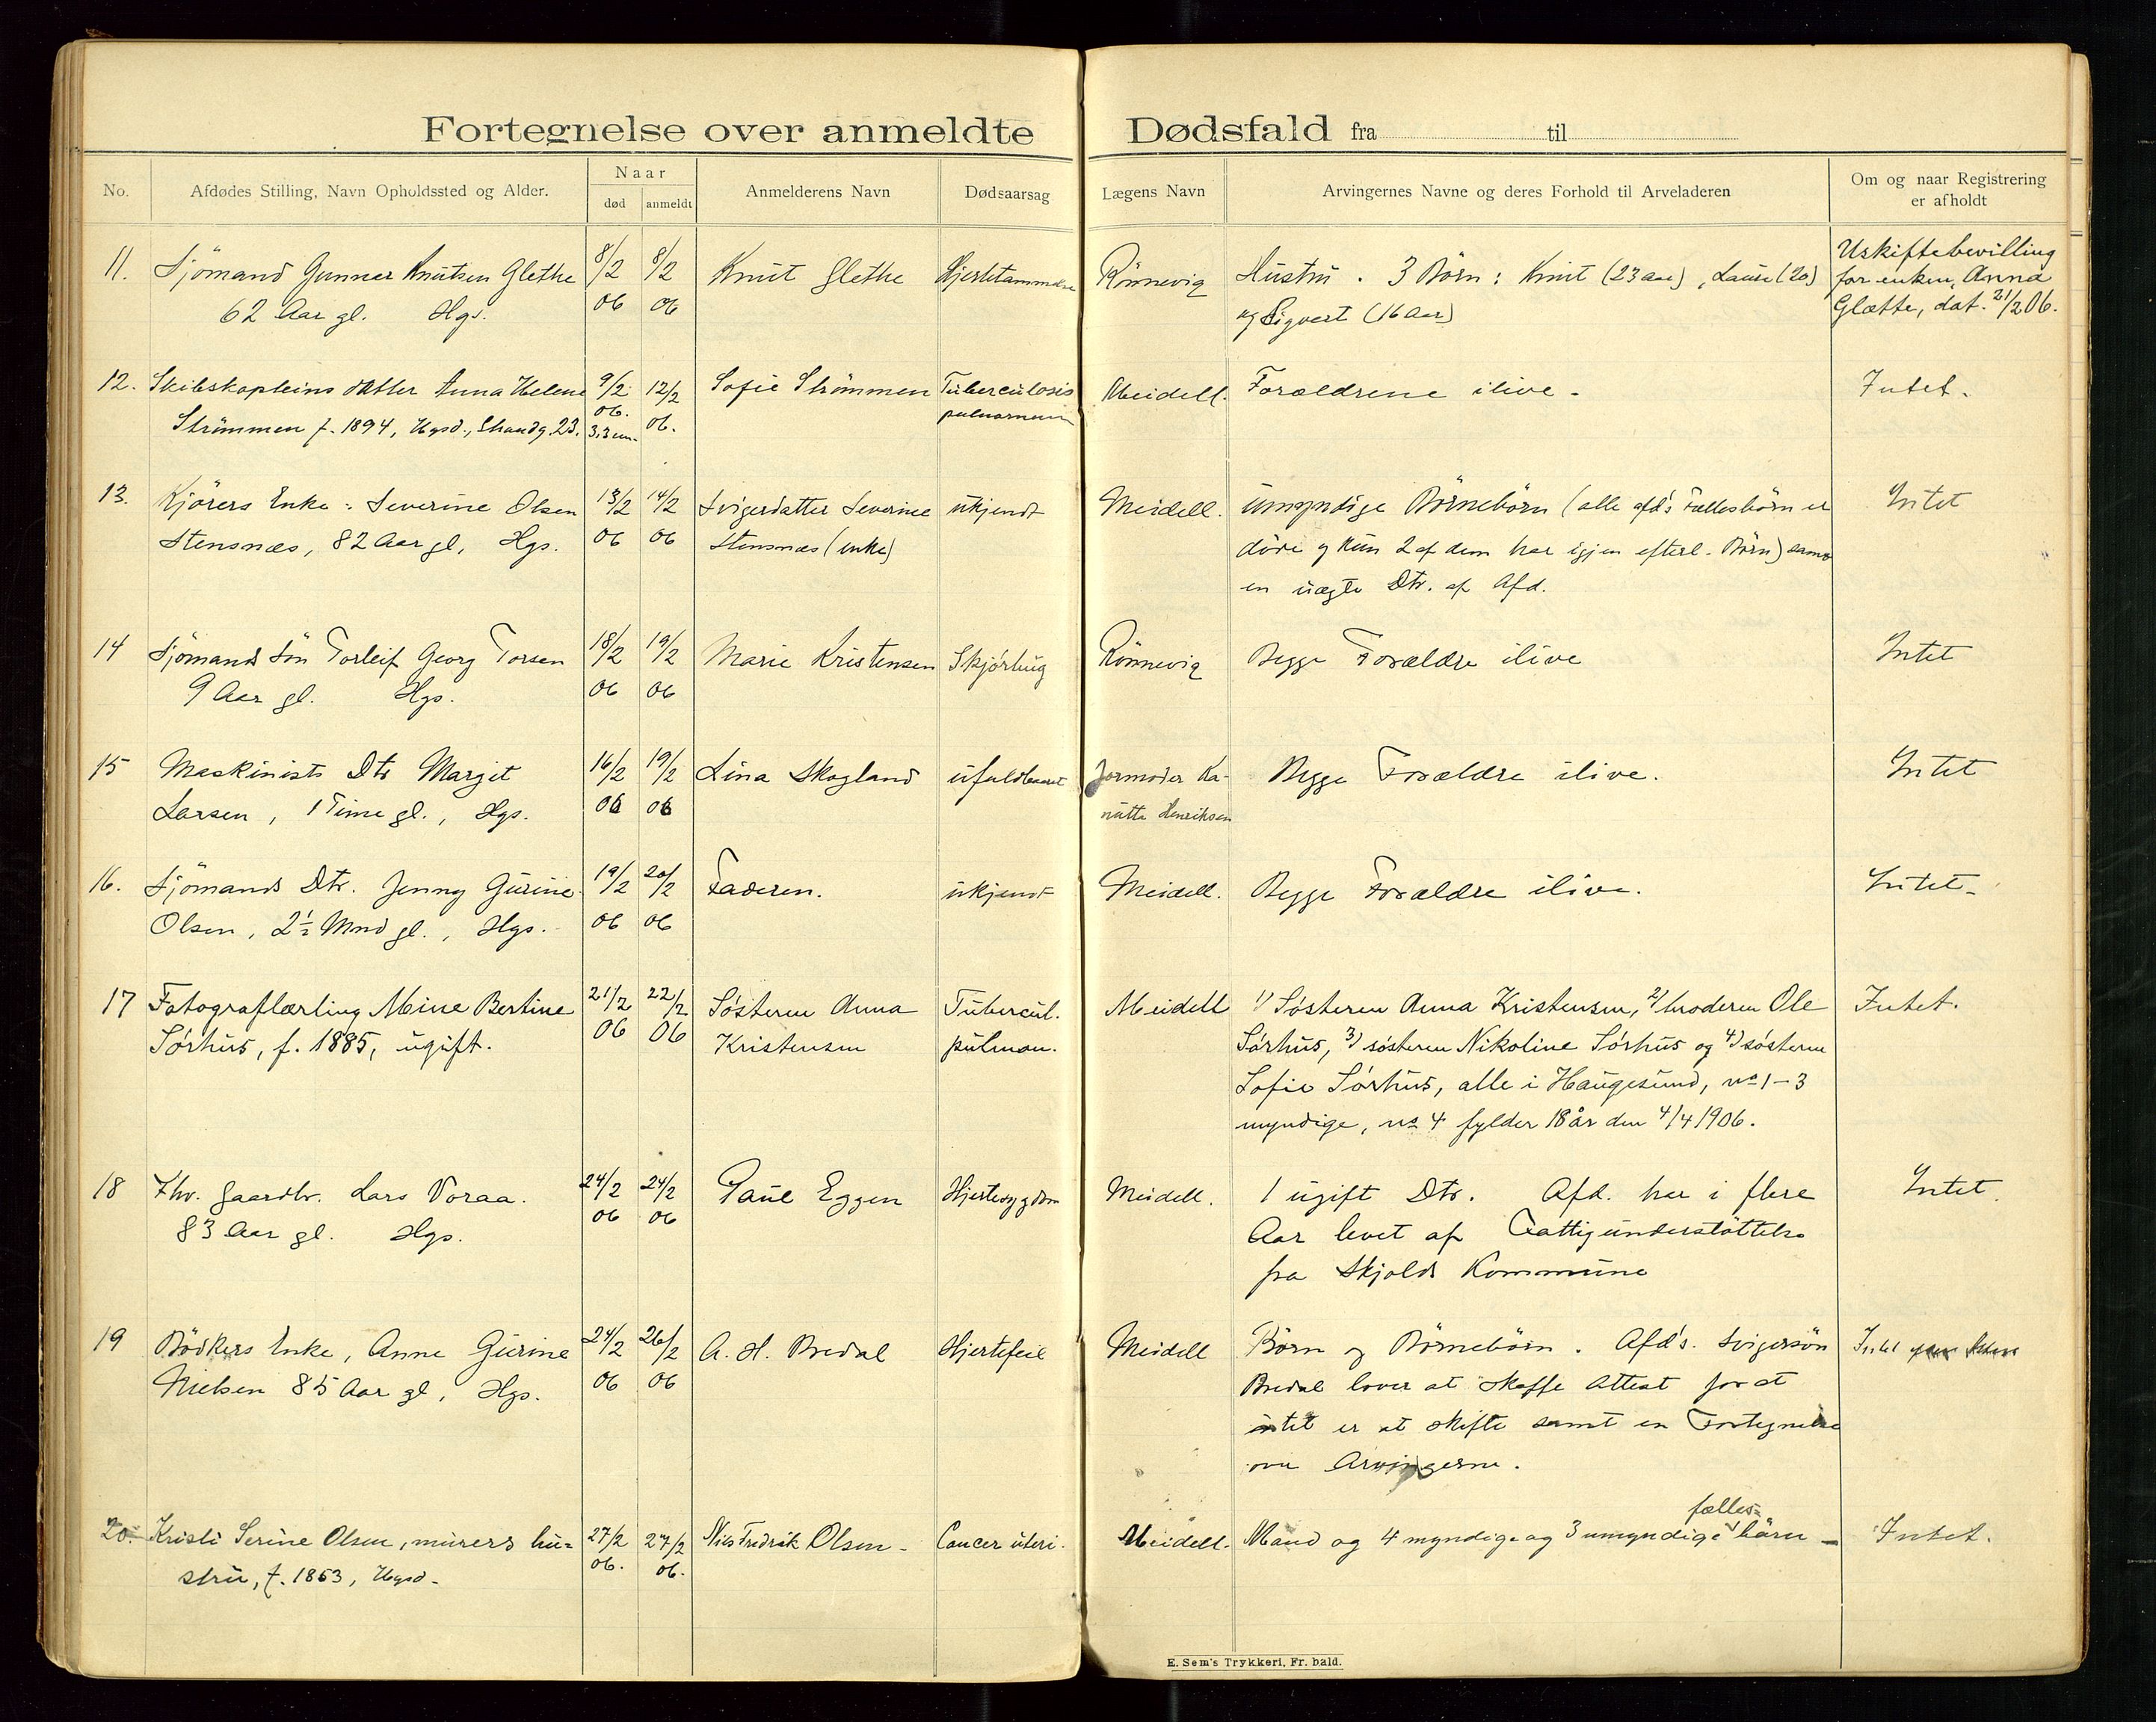 Fortegnelse over anmeldte Dødsfald fra til
No. Afdødes Stilling, Navn Opholdssted og Alder. Naar død anmeldt Anmelderens Navn Dødsaarsag Lægens Navn Arvingernes Navne og deres Forhold til Arveladeren Om og naar Registrering er afholdt
11. Sjömand Gunnar Knutsen Glethe 8/2 8/2 Knut Glethe Rönnevig Hustru. 3 Börn: Knut (23 aar), (20) Uskiftebevilling
62 Aar gl. Hgs. 06 06 og Sigvert (16 Aar) for enken, Anna
Glætte, dat. 21/2 06.
12. Skibskapteins datter Anna Helene 9/2 12/2 Sofie Strömmen Tuberculosis Meidell. Forældrene ilive. Intet.
Strömmen f. 1894, Hgsd., Strandg. 23. 06. 06.
13. Kjörers Enke: Severine Olsen 13/2 14/2 Svigerdatter Severine ukjendt Meidell. umyndige Börnebörn (alle afd's Fællesbörn er Intet
Stensnæs, 82 Aar gl, Hgs. 06 06 Stensnæs (enke) döde og kun 2 af dem har igjen efterl. Börn) samt
en uægte Dtr. af Afd.
14 Sjömands Sön Torleif Georg Torsen 18/2 19/2 Marie Kristensen Skjörbug Rönnevig Begge Forældre ilive Intet
9 Aar gl. Hgs. 06 06
15 Maskinists Dtr Margit 16/2 19/2 Lina Skogland ufuldbaaret Jormoder Ka- Begge Forældre ilive. Intet
Larsen, 1 Time gl., Hgs. 06 06 Henriksen
16. Sjömands Dtr. Jenny Gurine 19/2 20/2 Faderen. ukjendt Meidell. Begge Forældre ilive. Intet.
Olsen, 2½ Mnd gl., Hgs. 06 06
17 Fotograflærling Mine Bertine 21/2 22/2 Søsteren Anna Tubercul. Meidell 1) Søsteren Anna Kristensen, 2) broderen Ole Intet.
Sørhus, f. 1885, ugift. 06 06 Kristensen pulmon. Sørhus, 3) søsteren Nikoline Sørhus og 4) søsteren
Sofie Sørhus, alle i Haugesund, no 1-3
myndige, no 4 fylder 18 år den 4/4 1906.
18 Fhv. Gaardbr. Lars Voraa. 24/2 24/2 Paul Eggen Hjertesygdom Meidell. 1 ugift Dtr. Afd. har i flere Intet.
83 Aar gl. Hgs. 06 06 Aar levet af Fattigunderstöttelse
fra Skjolds Kommune
19 Bödkers Enke, Anne Gurine 24/2 26/2 A. H. Bredal Hjertefeil Meidell Börn og Börnebörn. Afd's. Svigersön Intet
Nielsen 85 Aar gl, Hgs. 06 06 Bredal lover at skaffe Attest for at
intet er at skifte samt en Fortegnelse
over Arvingerne.
20. Kristi Serine Olsen, murers hu= 27/2 27/2 Nils Fredrik Olsen Cancer uteri. Meidell. Mand og 4 myndige og 3 umyndige fælles= børn Intet.
stru, f. 1863, Hgsd. 06. 06.
E. Sem's Trykkeri, Fr. hald.